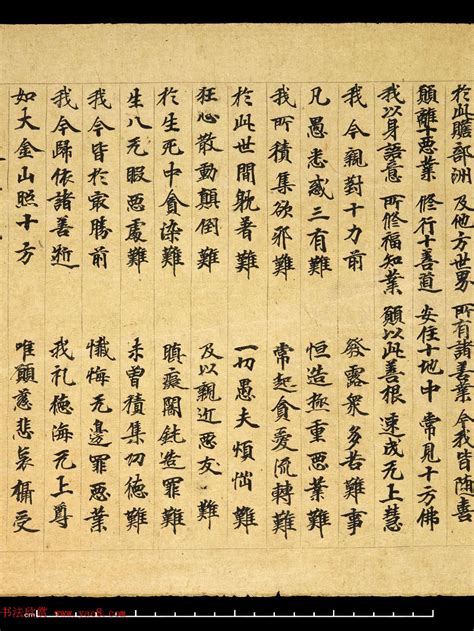 於此贍部洲 及他方世界 所有諸善業 今我皆隨喜
願離十惡業 修行十善道 安住十地中 常見十方佛
我以身語意 所修福知業 願以此善根 速成无上慧
我今親對十力前 發露衆多苦難事
凡愚迷惑三有難 恒造極重惡業難
我所積集欲邪難 常起貪愛流轉難
於此世間躭著難 一切愚夫煩惱難
狂心散動顛倒難 及以親近惡友難
於生死中貪染難 瞋癡闇鈍造罪難
生八无暇惡處難 未曾積集功德難
我今皆於最勝前 懺悔无邊罪惡業
我今歸依諸善逝 我礼德海无上尊
如大金山照十方 唯願慈悲哀攝受
书法欣赏 www.yac8.com
cm